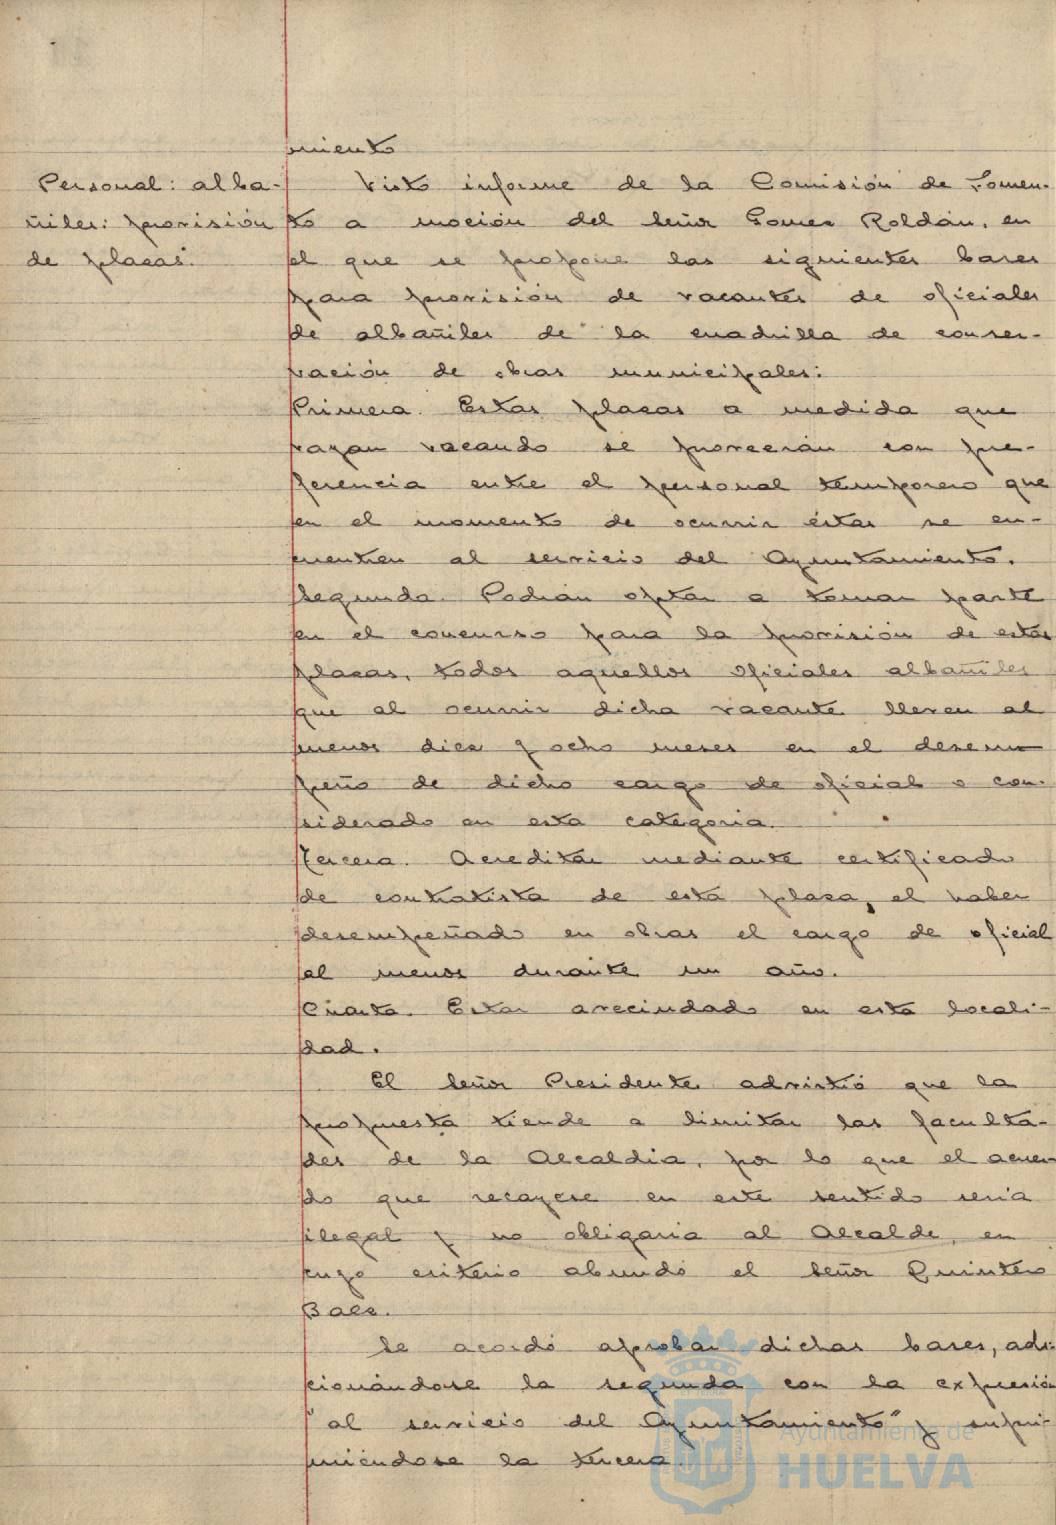 miento
Personal: alba-
ñiles: provisión
de plazas.
Visto informe de la Comisión de Fomen-
to a moción del Señor Gomez Roldán, en
el que se propone las siguientes bases
para provisión de vacantes de oficiales
de albañiles de la cuadrilla de conser-
vación de obras municipales:
Primera. Estas plazas a medida que
vayan vacando se proveerán con pre-
ferencia entre el personal temporero que
en el momento de ocurrir éstas se en-
cuentren al servicio del Ayuntamiento.
Segunda. Podrán optar a tomar parte
en el concurso para la provisión de estas
plazas, todos aquellos oficiales albañiles
que al ocurrir dicha vacante lleven al
menos diez y ocho meses en el desem
peño de dicho cargo de oficial o con-
siderado en esta categoria.
Tercera. Acreditar mediante certificado
de contratista de esta plaza, el haber
desempeñado en obras el cargo de oficial
al menos durante un año.
Cuarta. Estar avecindado en esta locali-
dad.
El Señor Presidente advirtió que la
propuesta tiende a limitar las faculta-
des de la Alcaldia, por lo que el acuer-
do que recayese en este sentido seria
ilegal y no obligaria al Alcalde, en
cuyo criterio abundó el Señor Quintero
Baez.
Se acordó aprobar dichas bases, adi-
cionándose la segunda con la expresión
"al servicio del Ayuntamiento" y supri-
miéndose la tercera.
Ayuntamiento de
HUELVA